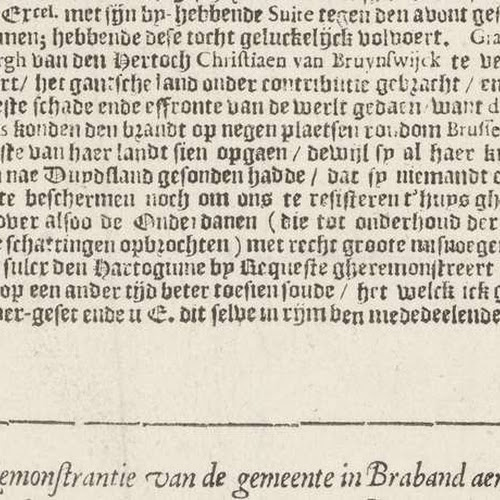 Excel. met sijn by-hebbende Suite tegen den avont
men; hebbende dese tocht geluckelijck volvoert.
van den Hertoch Christiaen van Bruynswijck te
/ het gantsche land onder contributie gebracht /
schade ende effronte van de werlt gedaen want
konden den brandt op negen plaetsen rondom
van haer landt sien opgaen / dewijl sy al haer
nae Duydsland gesonden hadde / dat sy niemandt
te beschermen noch om ons te resisteren t'huys
over alsoo de Onderdanen ( die tot onderhoud der
schattingen opbrochten ) met recht groote
den Hartoginne by Requeste gheremonstreert
op een ander tijd beter toesien soude / het welck ick
ende u E. dit selve in rijm ben mededeelende
emonstrantie van de gemeente in Braband